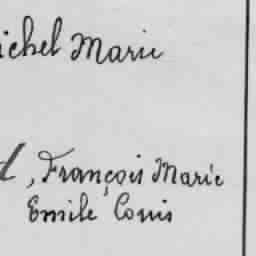 ichel Marie
d, François Marie
Emile Louis